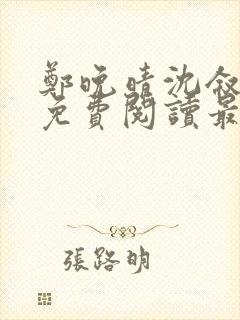 鄭晚晴沈敘
免費閱讀最
張路明